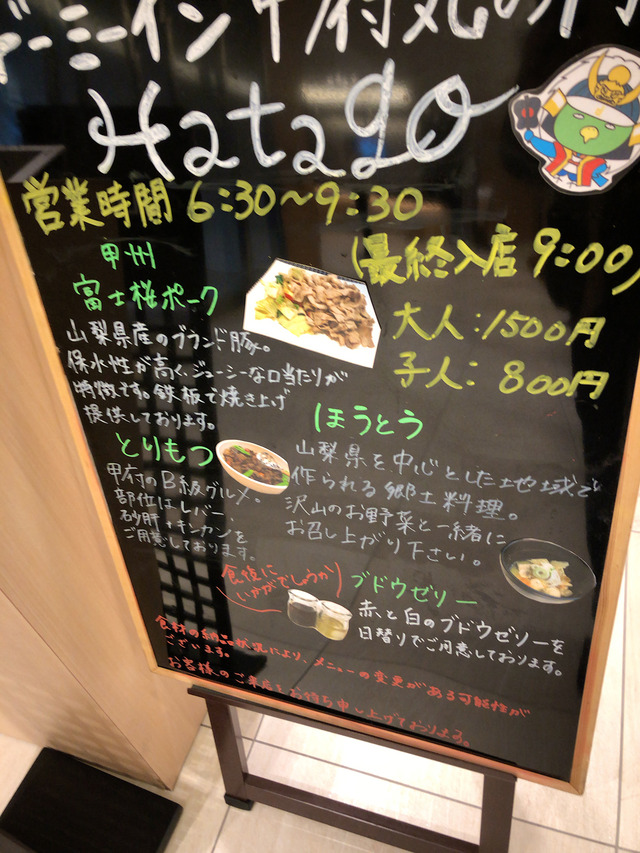 ドーミーイン甲府丸の内
Hatago
営業時間 6:30〜9:30
(最終入店 9:00)
大人:1500円
子人: 800円
甲州
富士桜ポーク
山梨県産のブランド豚。
保水性が高く、ジューシーな口当たりが
特徴です。鉄板で焼き上げ
提供しております。
ほうとう
山梨県を中心とした地域で
作られる郷土料理。
沢山のお野菜と一緒に
お召し上がり下さい。
とりもつ
甲府のB級グルメ。
部位はレバー、
砂肝、キンカンを
ご用意しております。
食後に
いかがでしょうか
ブドウゼリー
赤と白のブドウゼリーを
日替りでご用意しております。
食材の納品状況により、メニューの変更がある可能性が
ございます。
お客様のご来店をお待ち申し上げております。